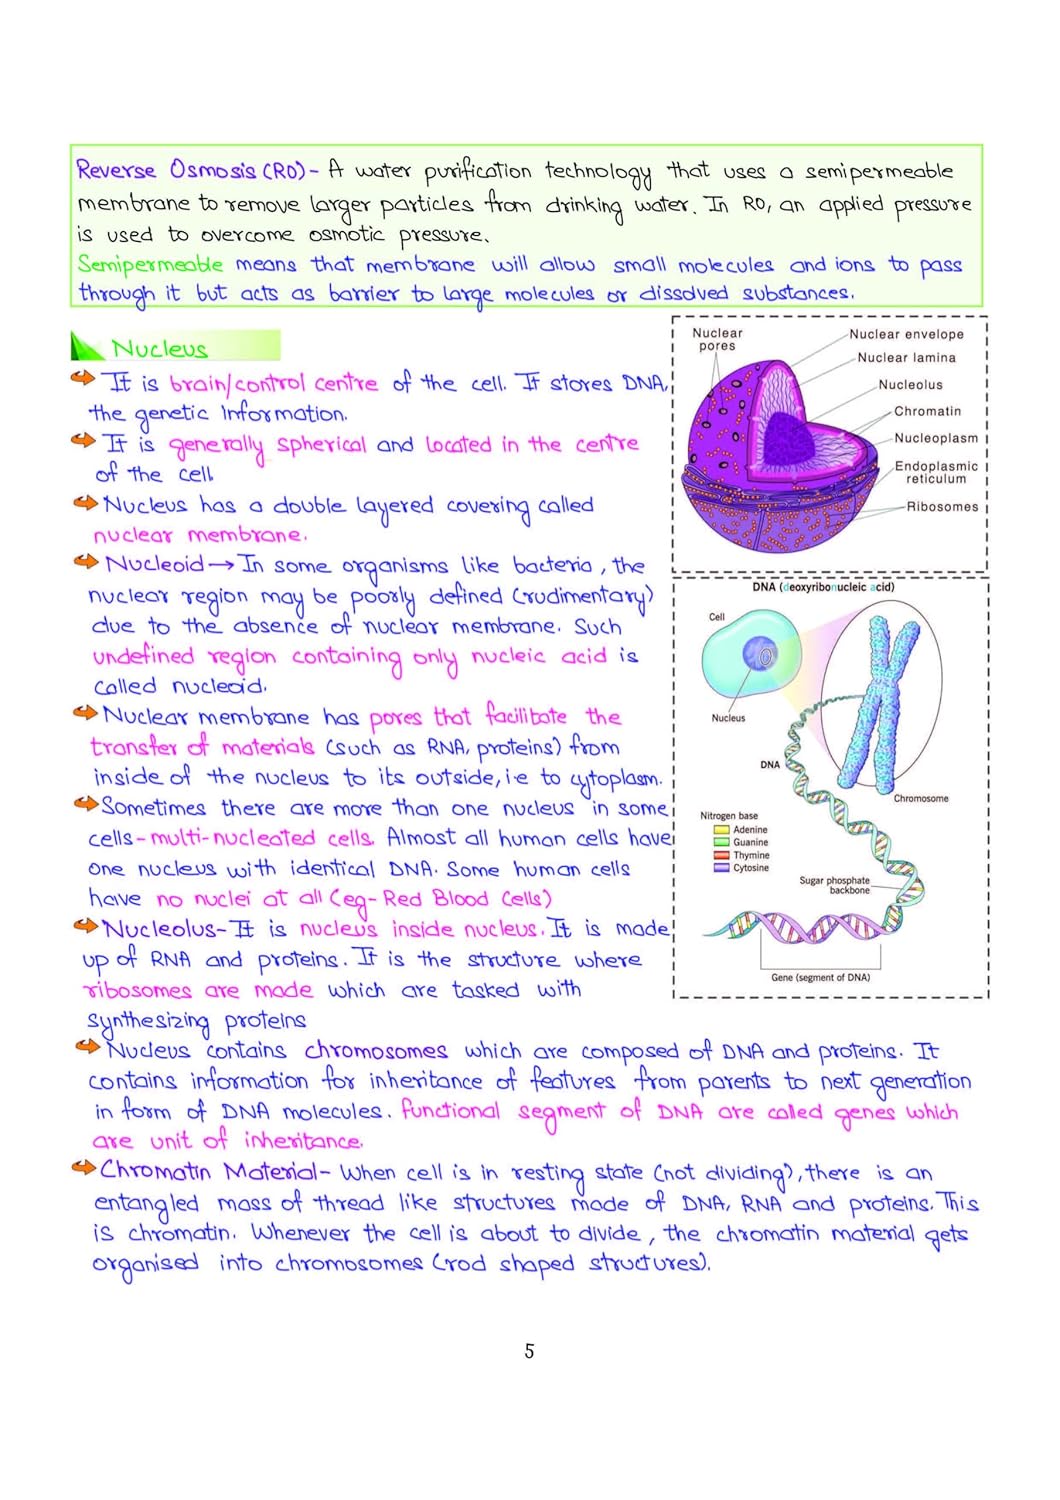 Reverse Osmosis (RO)- A water purification technology that uses a semipermeable
membrane to remove larger particles from drinking water. In RO, an applied pressure
is used to overcome osmotic pressure.
Semipermeable means that membrane will allow small molecules and ions to pass
through it but acts as barrier to large molecules or dissolved substances.
Nucleus
It is brain/control centre of the cell. It stores DNA,
the genetic Information.
It is generally spherical and located in the centre
of the cell
Nucleus has a double layered covering called
nuclear membrane.
Nucleoid → In some organisms like bacteria, the
nuclear region may be poorly defined (rudimentary)
due to the absence of nuclear membrane. Such
undefined region containing only nucleic acid is
called nucleoid.
Nuclear membrane has pores that facilitate the
transfer of materials (such as RNA, proteins) from
inside of the nucleus to its outside, i.e to cytoplasm.
Sometimes there are more than one nucleus in some
cells - multi-nucleated cells. Almost all human cells have
one nucleus with identical DNA. Some human cells
have no nuclei at all (eg- Red Blood Cells)
Nucleolus- It is nucleus inside nucleus. It is made
up of RNA and proteins. It is the structure where
ribosomes are made which are tasked with
synthesizing proteins
Nucleus contains chromosomes which are composed of DNA and proteins. It
contains information for inheritance of features from parents to next generation
in form of DNA molecules. functional segment of DNA are called genes which
are unit of inheritance.
Chromatin Material- When cell is in resting state (not dividing), there is an
entangled mass of thread like structures made of DNA, RNA and proteins. This
is chromatin. Whenever the cell is about to divide, the chromatin material gets
organised into chromosomes (rod shaped structures).
Nuclear
pores
Nuclear envelope
Nuclear lamina
Nucleolus
Chromatin
Nucleoplasm
Endoplasmic
reticulum
Ribosomes
DNA (deoxyribonucleic acid)
Cell
Nucleus
DNA
Chromosome
Nitrogen base
Adenine
Guanine
Thymine
Cytosine
Sugar phosphate
backbone
Gene (segment of DNA)
5